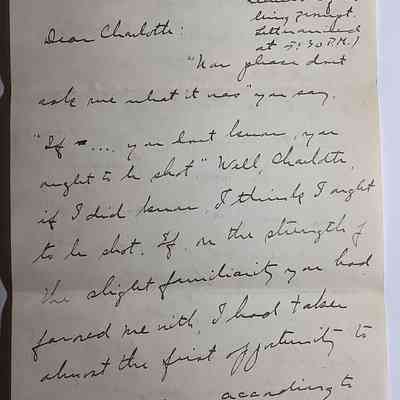 being prompt.
Letter arrived
at 5:30 P.M.)
Dear Charlotte:
"Now please don't
ask me what it was" you say.
"If .... you don't know, you
ought to be shot" Well, Charlotte,
if I did know, I think I ought
to be shot. If, on the strength of
the slight familiarity you had
favored me with, I had taken
almost the first opportunity to
according to